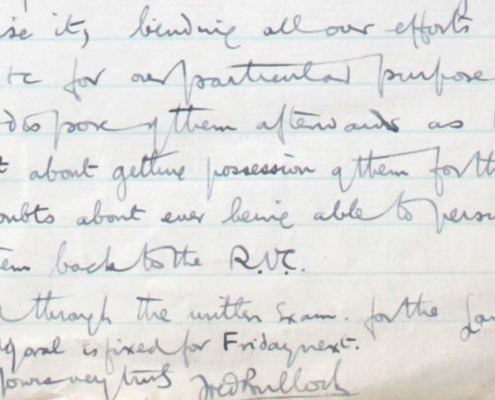 it, bending all our efforts
for our particular purpose
of them afterwards as
about getting possession of them for th
oubts about ever being able to persu
em back to the R.V.C.
through the written Exam. for the
oral is fixed for Friday next.
Yours very truly Fred Bullock